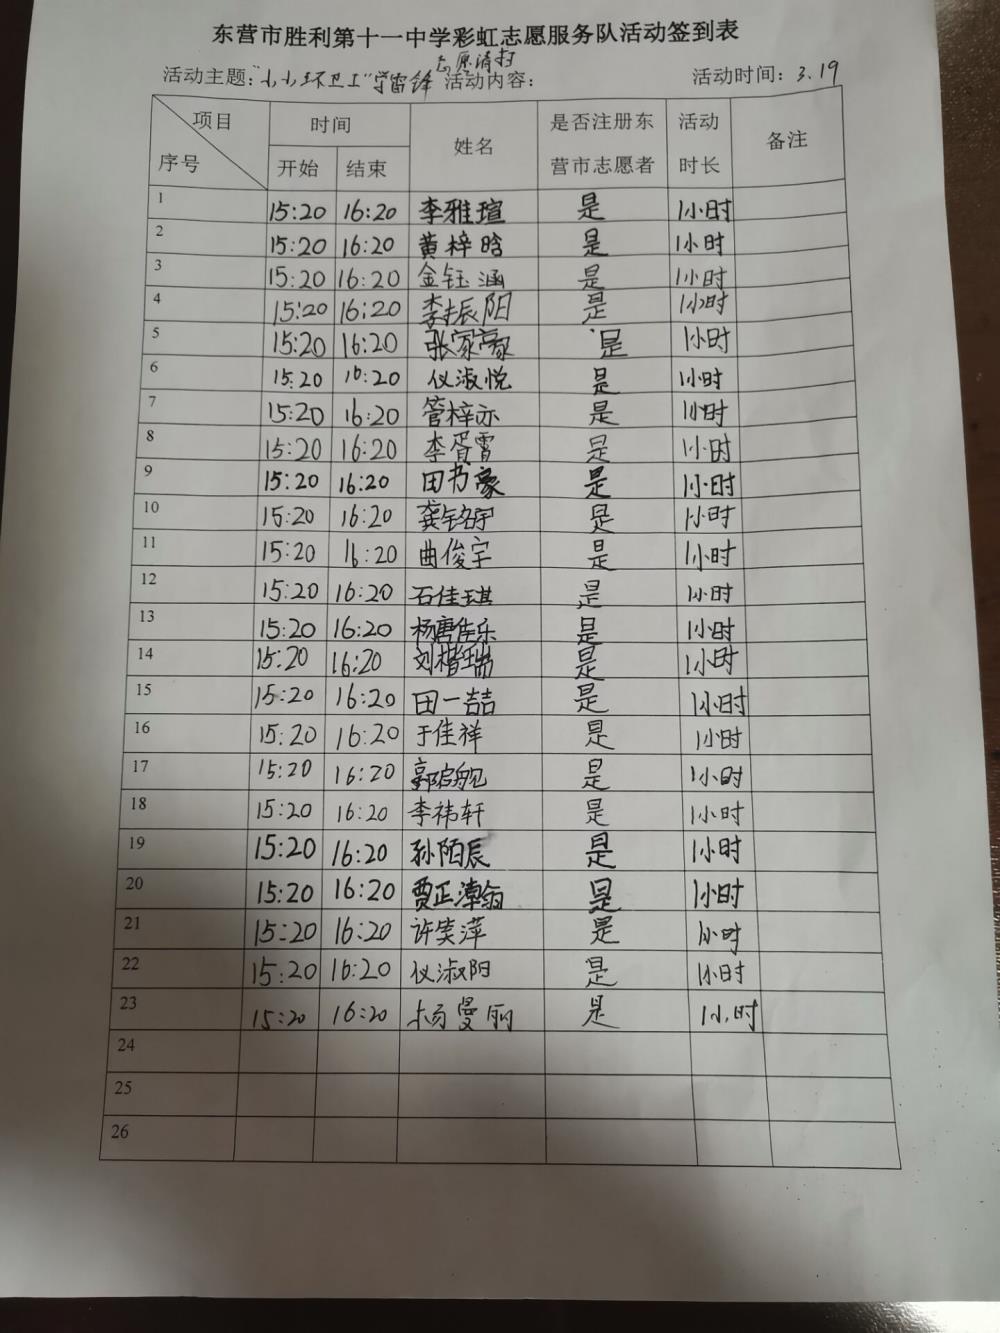 东营市胜利第十一中学彩虹志愿服务队活动签到表
志愿清扫
活动主题:"小小环卫工"学雷锋 活动内容: 活动时间: 3.19
项目 序号 时间 开始 结束 姓名 是否注册东营市志愿者 活动时长 备注
1 15:20 16:20 李雅瑄 是 1小时
2 15:20 16:20 黄梓晗 是 1小时
3 15:20 16:20 金钰涵 是 1小时
4 15:20 16:20 李振阳 是 1小时
5 15:20 16:20 张家豪 是 1小时
6 15:20 16:20 仪淑悦 是 1小时
7 15:20 16:20 管梓亦 是 1小时
8 15:20 16:20 李胥霄 是 1小时
9 15:20 16:20 田书豪 是 1小时
10 15:20 16:20 龚铭宇 是 1小时
11 15:20 16:20 曲俊宇 是 1小时
12 15:20 16:20 石佳琪 是 1小时
13 15:20 16:20 杨唐佳乐 是 1小时
14 15:20 16:20 刘楷瑞 是 1小时
15 15:20 16:20 田一喆 是 1小时
16 15:20 16:20 于佳祥 是 1小时
17 15:20 16:20 是 1小时
18 15:20 16:20 李祎轩 是 1小时
19 15:20 16:20 孙陌辰 是 1小时
20 15:20 16:20 是 1小时
21 15:20 16:20 许笑萍 是 1小时
22 15:20 16:20 仪淑阳 是 1小时
23 15:20 16:20 杨曼丽 是 1小时
24
25
26